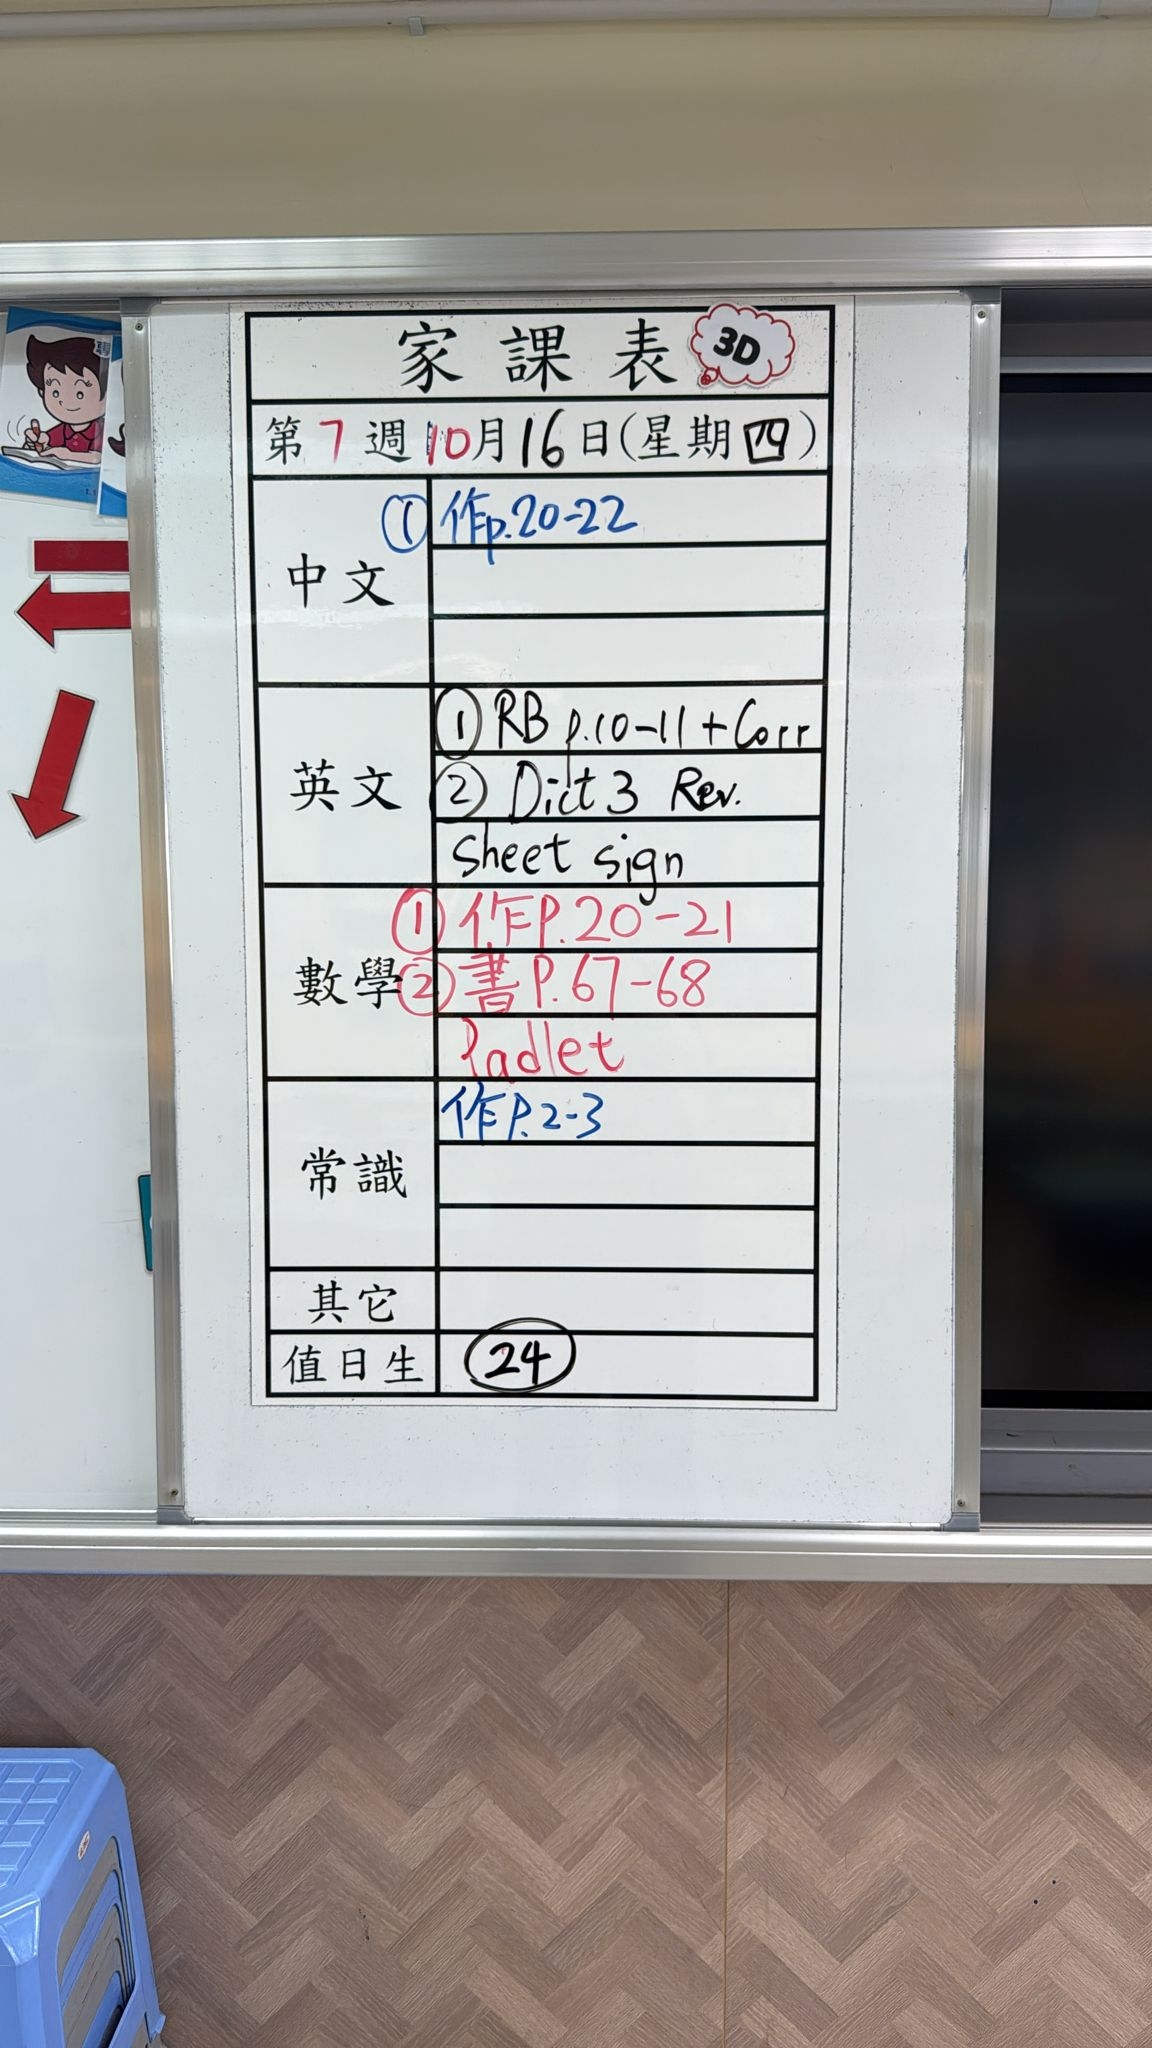 家課表 3D
第7週10月16日(星期四)
中文
① 作p.20-22
英文
① RB p.10-11+Corr
② Dict 3 Rev.
sheet sign
數學
① 作P.20-21
② 書P.67-68
Padlet
常識
作P.2-3
其它
值日生 24